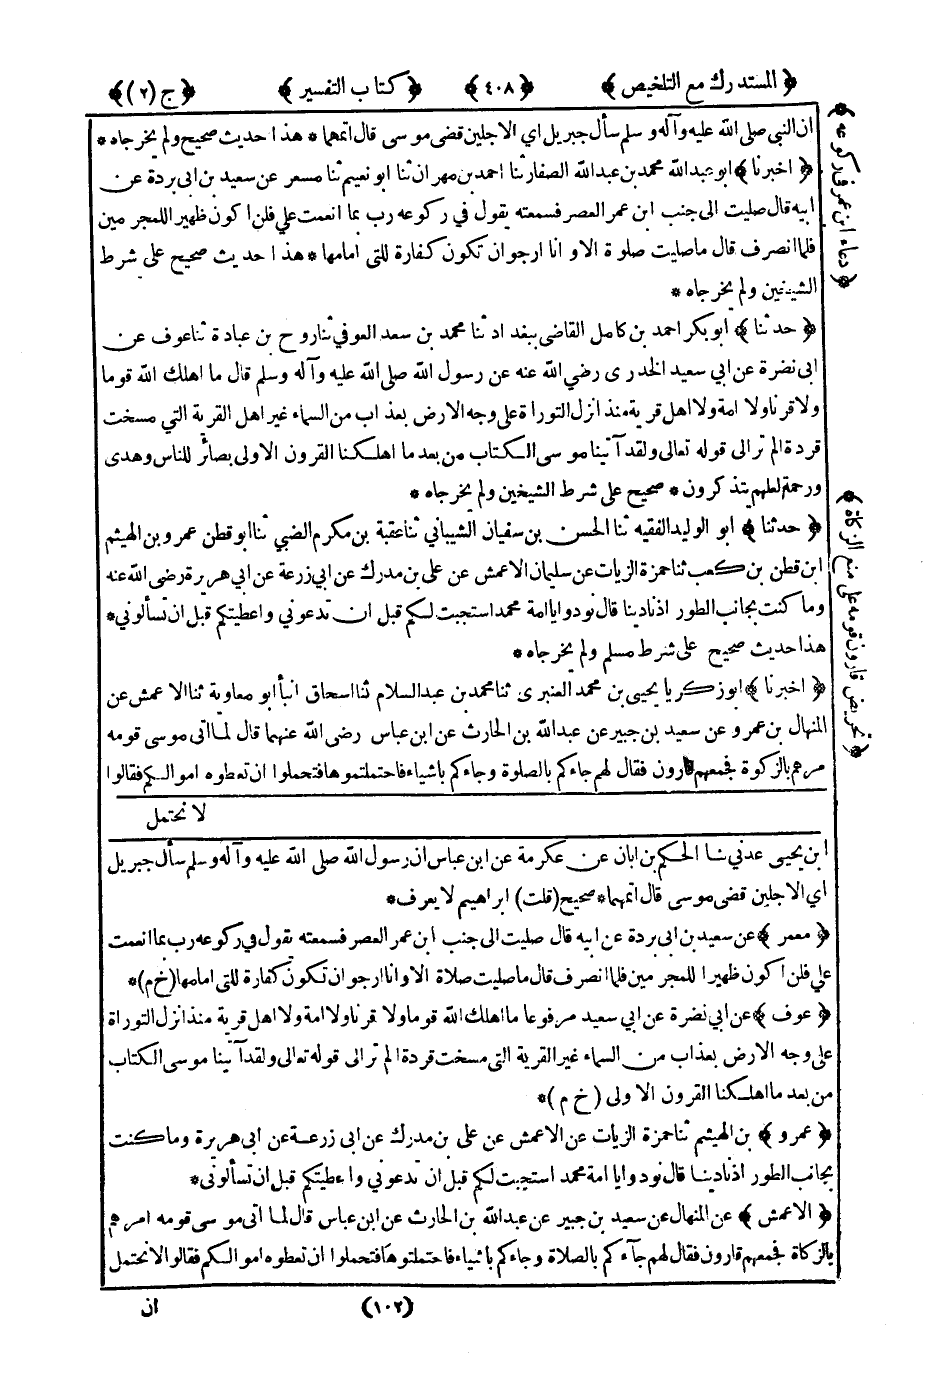 ﴿ المستدرك مع التلخيص ﴾ ﴿ ٤٠٨ ﴾ ﴿ كتاب التفسير ﴾ ﴿ ج (٢) ﴾
ان النبي صلى الله عليه وآله وسلم سأل جبريل اي الاجلين قضى موسى قال اتمهما * هذا حديث صحيح ولم يخرجاه *
﴿ اخبرنا ﴾ ابو عبدالله محمد بن عبدالله الصفار ثنا احمد بن مهران ثنا ابو نعيم ثنا مسعر عن سعيد بن ابى بردة عن
ابيه قال صليت الى جنب ابن عمر العصر فسمعته يقول في ركوعه رب بما انعمت علي فلن اكون ظهيرا للمجرمين
فلما انصرف قال ما صليت صلوة الا و انا ارجو ان تكون كفارة للتى امامها * هذا حديث صحيح على شرط
الشيخين ولم يخرجاه *
﴿ حدثنا ﴾ ابو بكر احمد بن كامل القاضي ببغداد ثنا محمد بن سعد العوفي ثنا روح بن عبادة ثنا عوف عن
ابى نضرة عن ابي سعيد الخدرى رضي الله عنه عن رسول الله صلى الله عليه وآله وسلم قال ما اهلك الله قوما
ولا قرنا ولا امة ولا اهل قرية منذ انزل التوراة على وجه الارض بعذاب من السماء غير اهل القرية التي مسخت
قردة الم تر الى قوله تعالى ولقد آتينا موسى الكتاب من بعد ما اهلكنا القرون الاولى بصائر للناس وهدى
ورحمة لعلهم يتذكرون * صحيح على شرط الشيخين ولم يخرجاه *
﴿ حدثنا ﴾ ابو الوليد الفقيه ثنا الحسن بن سفيان الشيباني ثنا عقبة بن مكرم الضبي ثنا ابو قطن عمرو بن الهيثم
ابن قطن بن كعب ثنا حمزة الزيات عن سليمان الاعمش عن على بن مدرك عن ابي زرعة عن ابي هريرة رضى الله عنه
وما كنت بجانب الطور اذ نادينا قال نودوا يا امة محمد استجبت لكم قبل ان تدعوني واعطيتكم قبل ان تسألوني *
هذا حديث صحيح على شرط مسلم ولم يخرجاه *
﴿ اخبرنا ﴾ ابو زكريا يحيى بن محمد العنبرى ثنا محمد بن عبد السلام ثنا اسحاق انبأ ابو معاوية ثنا الاعمش عن
المنهال بن عمرو عن سعيد بن جبير عن عبدالله بن الحارث عن ابن عباس رضى الله عنهما قال لما اتى موسى قومه
مرهم بالزكوة فجمعهم قارون فقال لهم جاءكم بالصلوة وجاءكم باشياء فاحتملتموها فتحملوا ان تعطوه اموالكم فقالوا
لا نحتمل
ابن يحيى عدني ثنا الحكم بن ابان عن عكرمة عن ابن عباس ان رسول الله صلى الله عليه وآله وسلم سأل جبريل
اي الاجلين قضى موسى قال اتمهما * صحيح (قلت) ابراهيم لا يعرف *
﴿ معمر ﴾ عن سعيد بن ابى بردة عن ابيه قال صليت الى جنب ابن عمر العصر فسمعته يقول في ركوعه رب بما انعمت
علي فلن اكون ظهيرا للمجرمين فلما انصرف قال ما صليت صلاة الا وانا ارجو ان تكون كفارة للتى امامها (خ م) *
﴿ عوف ﴾ عن ابي نضرة عن ابي سعيد مرفوعا ما اهلك الله قوما ولا قرنا ولا امة ولا اهل قرية منذ انزل التوراة
على وجه الارض بعذاب من السماء غير القرية التى مسخت قردة الم تر الى قوله تعالى ولقد آتينا موسى الكتاب
من بعد ما اهلكنا القرون الاولى (خ م) *
﴿ عمرو ﴾ بن الهيثم ثنا حمزة الزيات عن الاعمش عن على بن مدرك عن ابى زرعة عن ابى هريرة وما كنت
بجانب الطور اذ نادينا قال نودوا يا امة محمد استجبت لكم قبل ان تدعوني واعطيتكم قبل ان تسألونى *
﴿ الاعمش ﴾ عن المنهال عن سعيد بن جبير عن عبدالله بن الحارث عن ابن عباس قال لما اتى موسى قومه امرهم
بالزكاة فجمعهم قارون فقال لهم جآءكم بالصلاة وجاءكم باشياء فاحتملتوها فتحملوا ان تعطوه اموالكم فقالوا لا نحتمل
(١٠٢) ان
﴿ دعاء ابن عمر في ركوعه ﴾
﴿ تحريض قارون قومه على منع الزكاة ﴾